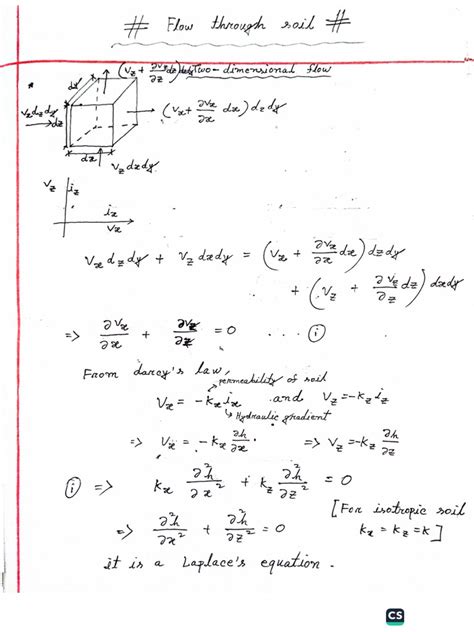 # Flow through soil #
(v_z + ∂v_z/∂z dz) dxdy Two-dimensional flow
dy
v_x dz dy
dz
(v_x + ∂v_x/∂x dx) dz dy
dx
v_z dxdy
v_z
i_z
i_x
v_x
v_x dz dy + v_z dxdy = (v_x + ∂v_x/∂x dx) dz dy
+ (v_z + ∂v_z/∂z dz) dxdy
=> ∂v_x/∂x + ∂v_z/∂z = 0 .... (i)
From darcy's law,
permeability of soil
v_x = -k_x i_x and v_z = -k_z i_z
↳ Hydraulic gradient
=> v_x = -k_x ∂h/∂x . => v_z = -k_z ∂h/∂z
(i) => k_x ∂²h/∂x² + k_z ∂²h/∂z² = 0
[For isotropic soil
=> ∂²h/∂x² + ∂²h/∂z² = 0 k_x = k_z = k]
it is a Laplace's equation.
CS